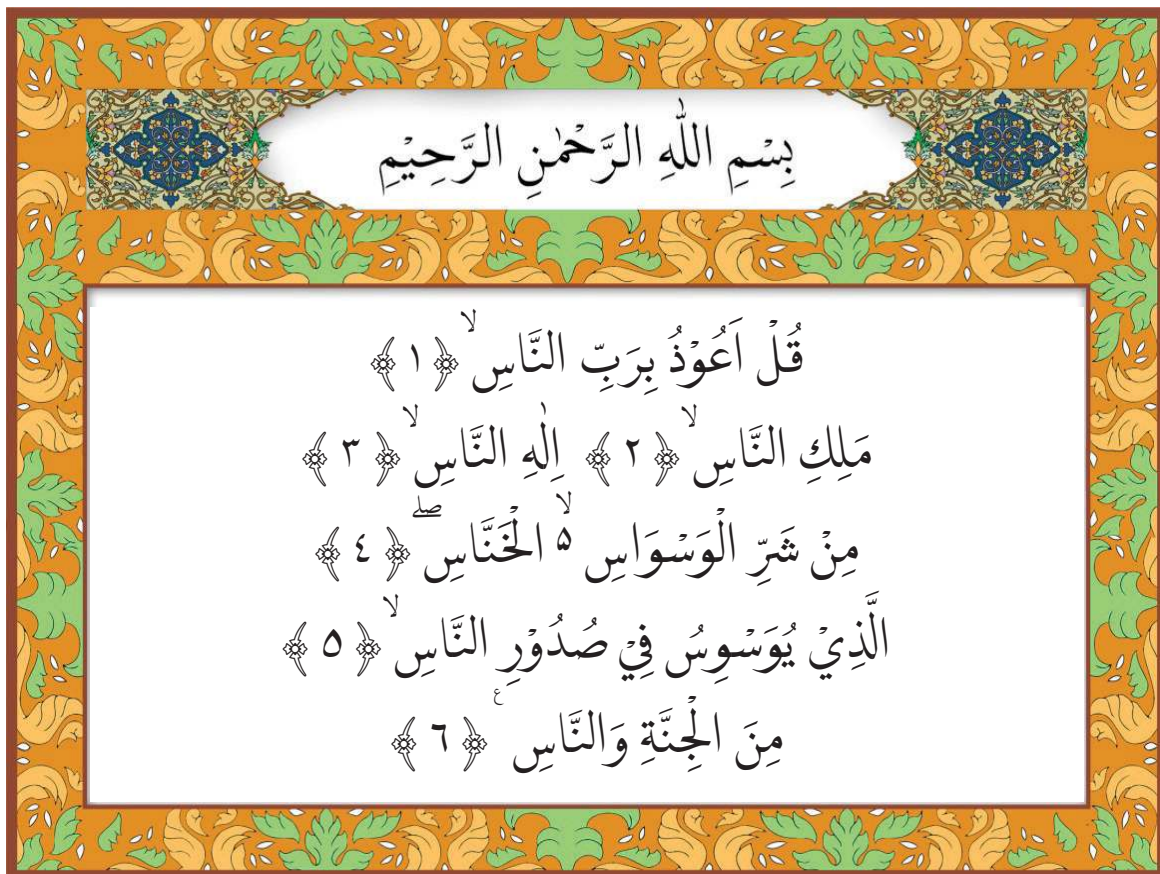 بِسْمِ اللّٰهِ الرَّحْمٰنِ الرَّحِيْمِ
قُلْ اَعُوْذُ بِرَبِّ النَّاسِ ۙ ﴿١﴾
مَلِكِ النَّاسِ ۙ ﴿٢﴾ اِلٰهِ النَّاسِ ۙ ﴿٣﴾
مِنْ شَرِّ الْوَسْوَاسِ ۵ۙ الْخَنَّاسِ ۖ ﴿٤﴾
الَّذِيْ يُوَسْوِسُ فِيْ صُدُوْرِ النَّاسِ ۙ ﴿٥﴾
مِنَ الْجِنَّةِ وَالنَّاسِ ع ﴿٦﴾